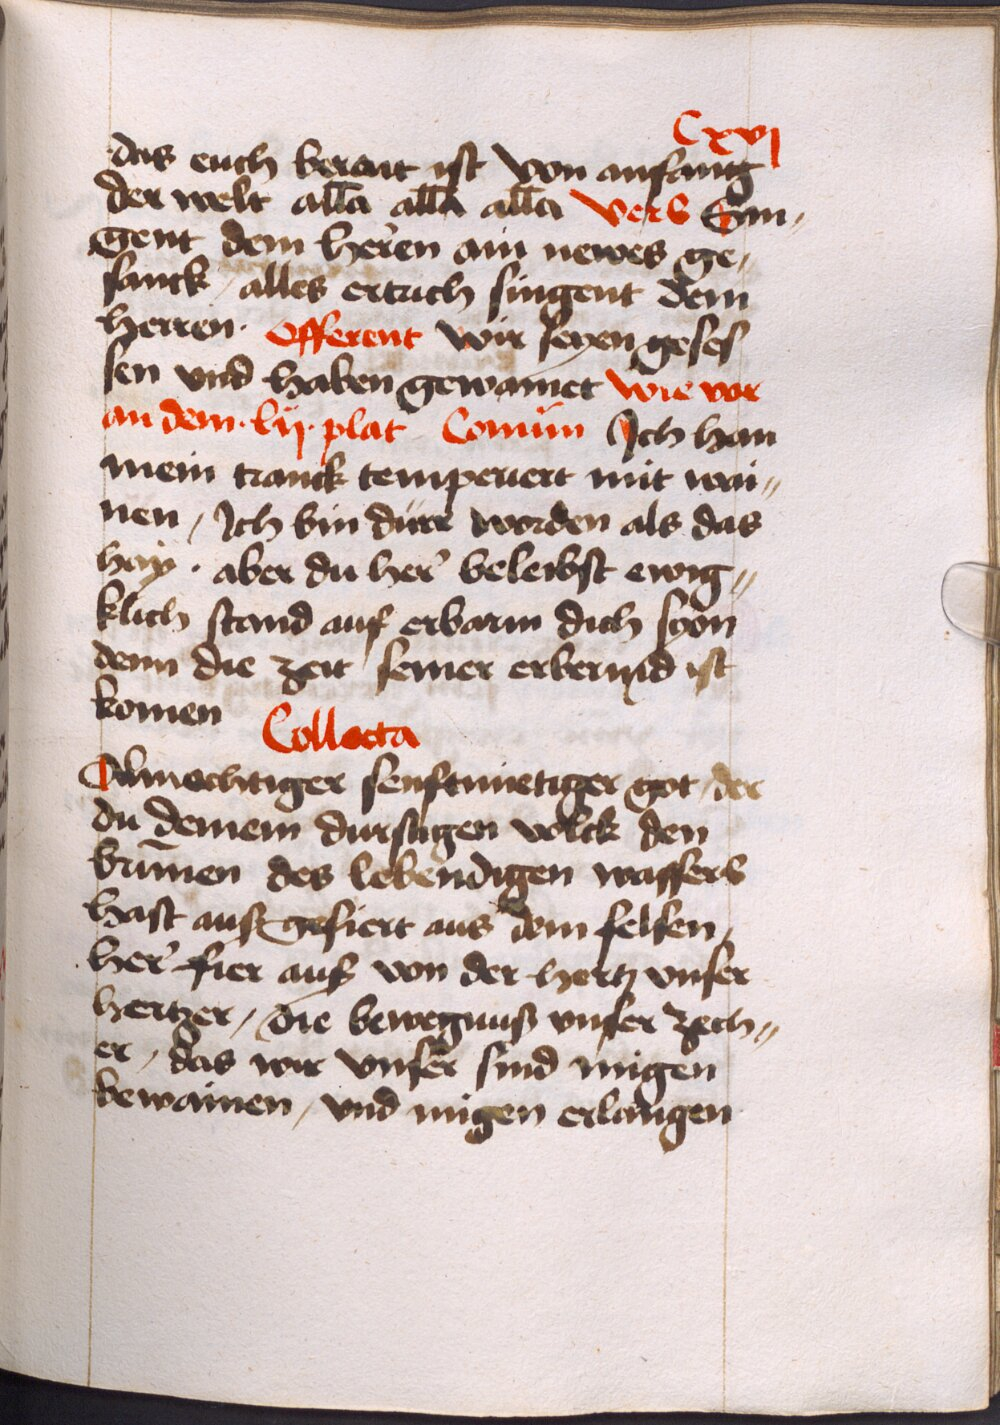 Cxvj
das euch berait ist von anfanng
der welt all̄a all̄a all̄a vers Sin-
gent dem herren ain newes ge-
sanck / alles ertrich singent dem
herren. Offerent wir seyen geses
sen vnd haben gewainet wie vor
an dem .lij. plat Comūn Ich han
mein tranck temperiert mit wai-
nen / Ich bin dürr worden als das
haÿ . aber du her beleibst ewig-
klich stand auf erbarm dich syon
denn die zeit seiner erbermd ist
komen Collecta
Almechtiger senftmietiger got / der
du deinem durstigen volck den
brūnen des lebendigen wassers
hast aufz gefiert aus dem felsen /
her fier aufz von der hertz vnser
hertzer / die bewegnuß vnser zech-
er / das wir vnser sind migen
bewainen / vnd migen erlangen